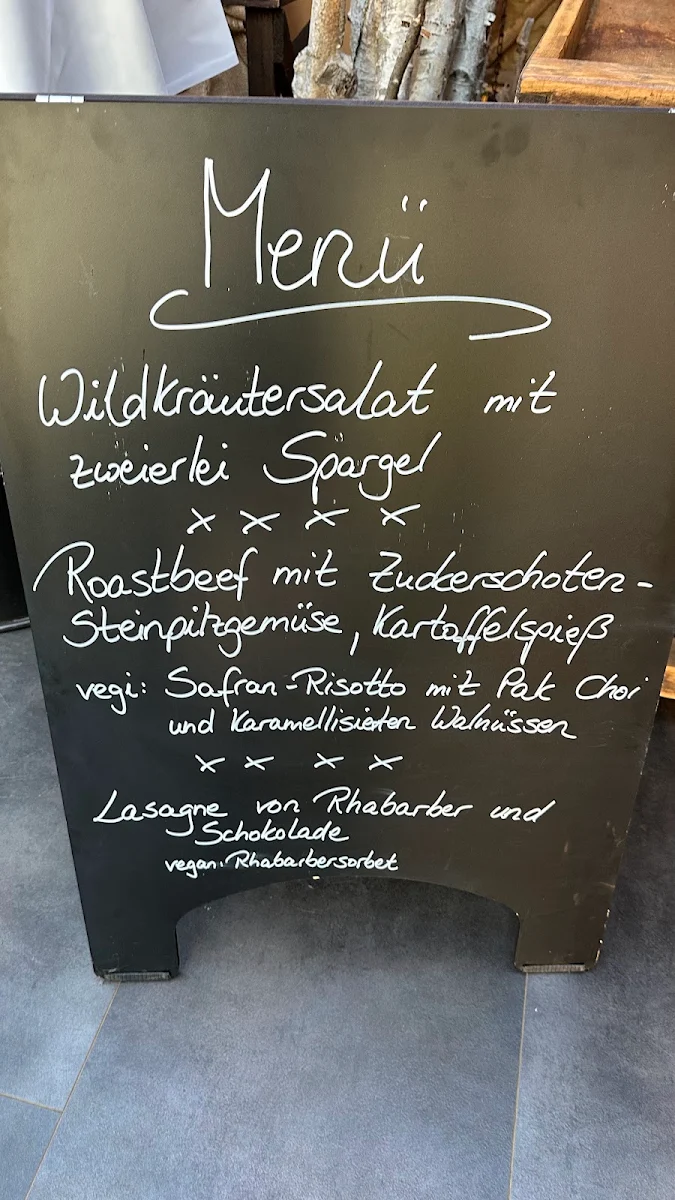 Menü
Wildkräutersalat mit
zweierlei Spargel
x x x x
Roastbeef mit Zuckerschoten-
Steinpilzgemüse, Kartoffelspieß
vegi: Safran-Risotto mit Pak Choi
und Karamellisierten Walnüssen
x x x x
Lasagne von Rhabarber und
Schokolade
vegan: Rhabarbersorbet